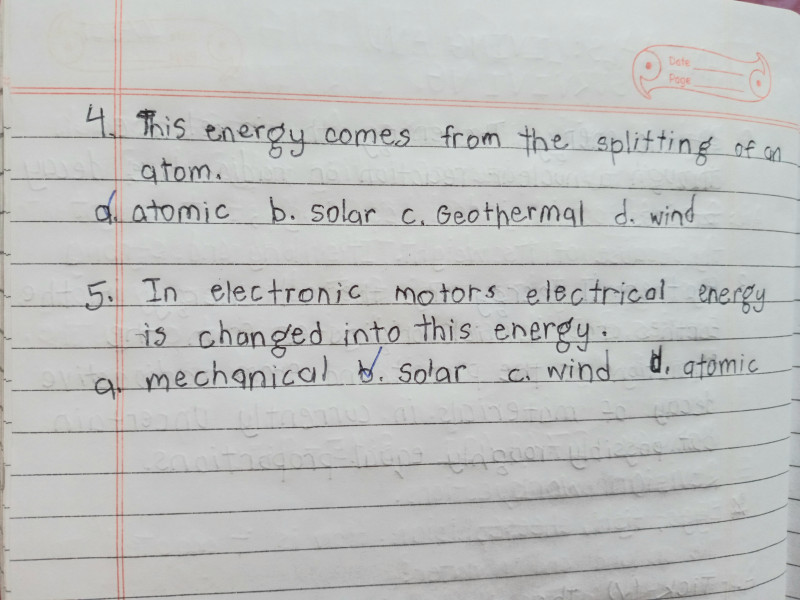 Date
Page
4. This energy comes from the splitting of an
atom.
a. atomic b. solar c. Geothermal d. wind
5. In electronic motors electrical energy
is changed into this energy.
a. mechanical b. solar c. wind d. atomic